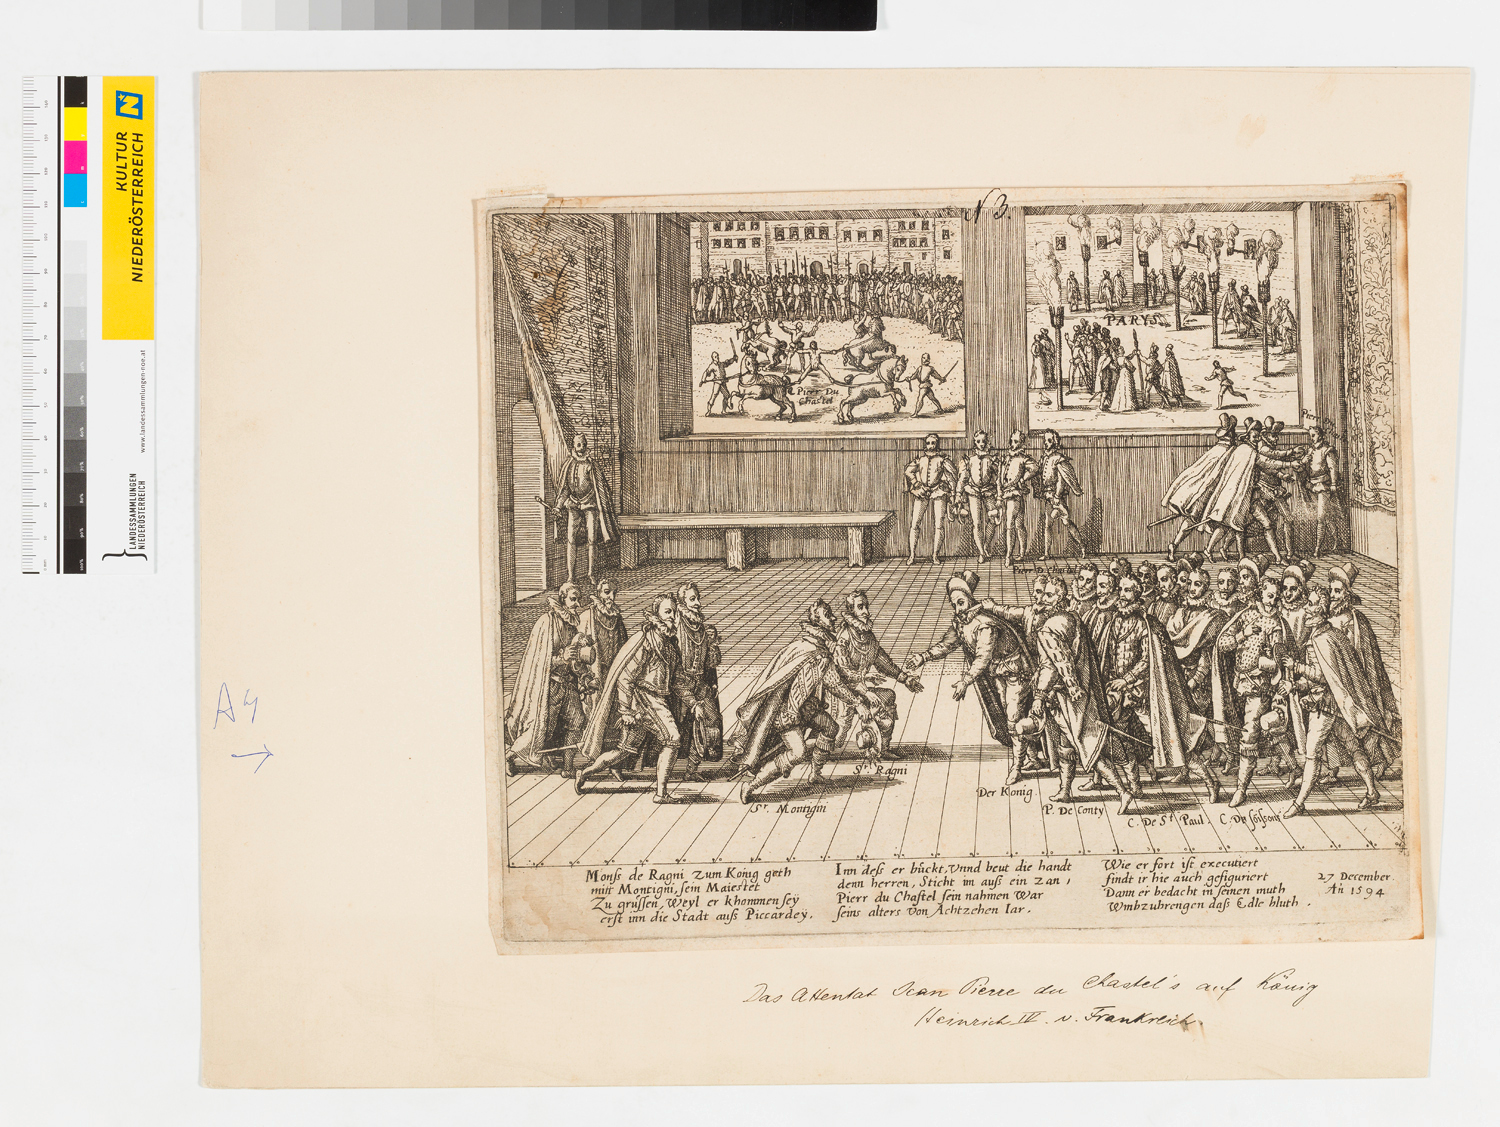 KULTUR
NIEDERÖSTERREICH
www.landessammlungen-noe.at
LANDESSAMMLUNGEN
NIEDERÖSTERREICH
A4
N 3.
PARYS
Pierr Du
Chastel
Pierr
Pierr D Chastel
Sr. Ragni
Sr. Montigni
Der Konig
P. De Conty
C. De St Paul.
C. De Soissons
Monss de Ragni zum König geth
mitt Montigni, sein Maiestet
Zu grussen, Weyl er khommen seÿ
erst inn die Stadt auss Piccardeÿ.
Inn dess er bückt, Vnnd beut die handt
denn herren, Sticht im auss ein zan,
Pierr du Chastel sein nahmen War
seins alters Von Achtzehen Iar.
Wie er fort ist executiert
findt ir hie auch gefiguriert
Dann er bedacht in seinen muth
Wmbzubrengen dass Edle bluth.
27 December.
Añ 1594
Das Attentat Jean Pierre du Chastel's auf König
Heinrich IV. v. Frankreich.